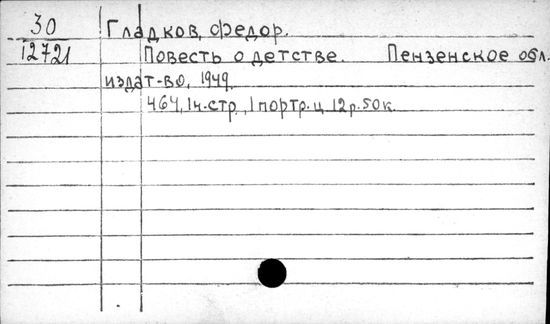 30 Гладков, Федор.
12721 Повесть о детстве. Пензенское обл.
издат-во, 1949.
464, 1ч. стр., 1 портр. ц. 12р. 50к.